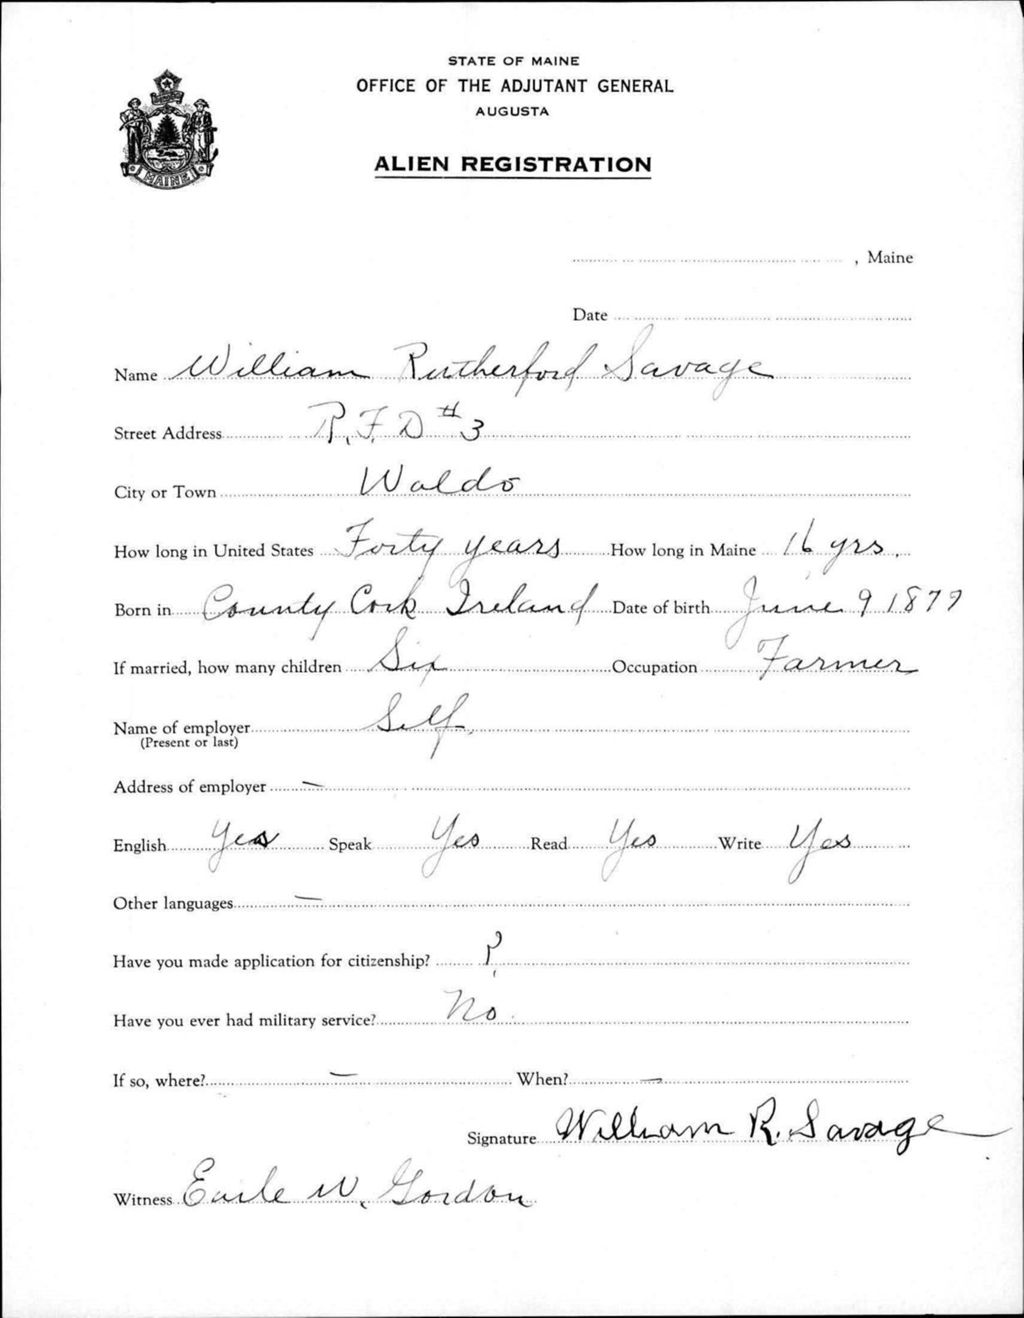 STATE OF MAINE
OFFICE OF THE ADJUTANT GENERAL
AUGUSTA
ALIEN REGISTRATION
MAINE
, Maine
Date
Name William Rutherford Savage
Street Address R.F.D #3
City or Town Waldo
How long in United States Forty years How long in Maine 16 yrs.
Born in County Cork Ireland Date of birth June 9 1877
If married, how many children Six Occupation Farmer
Name of employer Self.
(Present or last)
Address of employer —
English Yes Speak Yes Read Yes Write Yes
Other languages —
Have you made application for citizenship?
Have you ever had military service? No.
If so, where? — When? —
Signature William R. Savage
Witness Earle W. Gordon